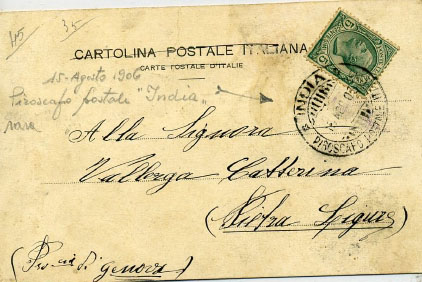 45 35
CARTOLINA POSTALE ITALIANA
CARTE POSTALE D'ITALIE
15 - Agosto 1906
Piroscafo postale "India"
rara
INDIA
PIROSCAFO
Alla Signora
Vallerga Catterina
(Pietra Ligure)
(Pro.cia di Genova)